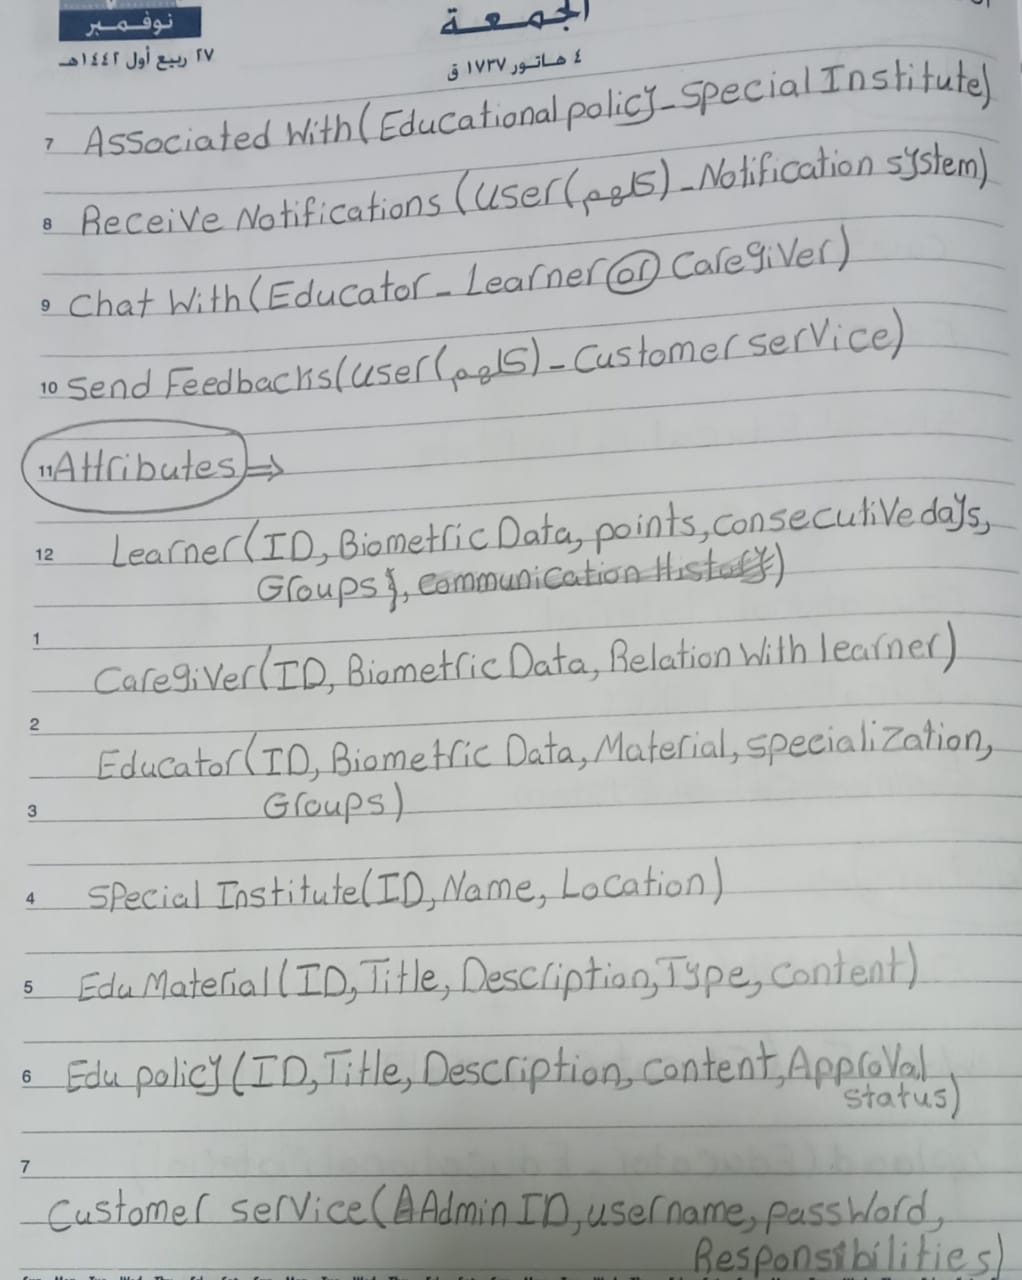 نوفمبر
الجمعة
٢٧ ربيع أول ١٤٤٢هـ
٤ هاتور ١٧٣٧ ق
7 Associated With (Educational policy - special Institute)
8 Receive Notifications (user (كلهم) - Notification system)
9 Chat With (Educator - Learner or Caregiver)
10 Send Feedbacks (user (كلهم) - Customer service)
11 Attributes ⇒
12 Learner (ID, Biometric Data, points, consecutive days,
Groups}, communication History)
1
Caregiver (ID, Biometric Data, Relation With learner)
2
Educator (ID, Biometric Data, Material, specialization,
3 Groups)
4 Special Institute (ID, Name, Location)
5 Edu Material (ID, Title, Description, Type, content)
6 Edu policy (ID, Title, Description, content, Approval
status)
7
Customer service (Admin ID, username, password,
Responsibilities)